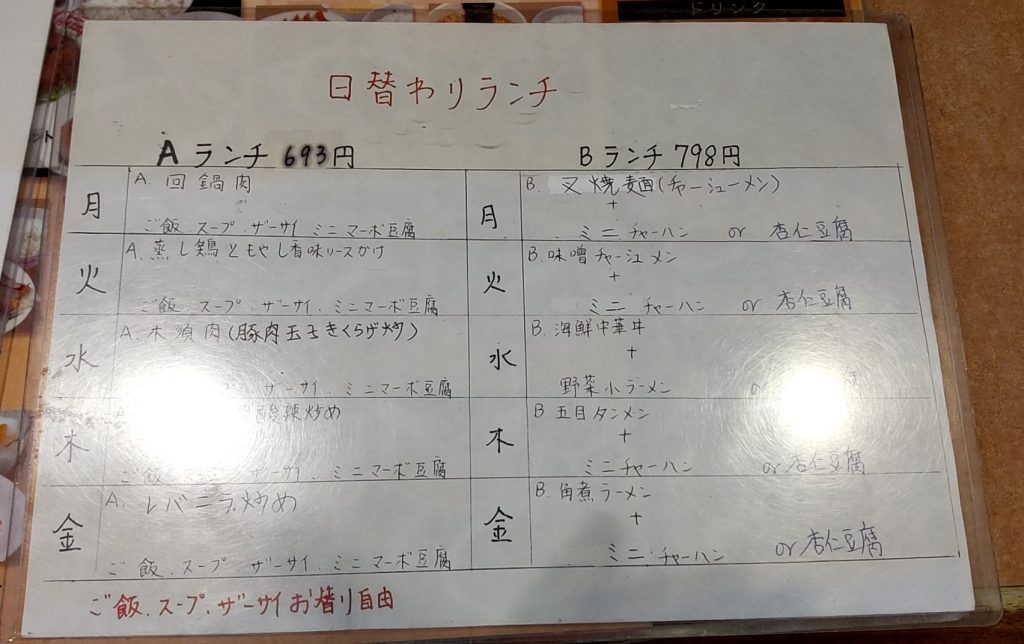 ドリンク
日替わりランチ
Aランチ 693円
Bランチ 798円
月
A. 回鍋肉
ご飯.スープ.ザーサイ.ミニマーボ豆腐
月
B. 叉焼麺(チャーシューメン)
+
ミニチャーハン or 杏仁豆腐
火
A. 蒸し鶏ともやし香味ソースかけ
ご飯.スープ.ザーサイ.ミニマーボ豆腐
火
B. 味噌チャーシュメン
+
ミニチャーハン or 杏仁豆腐
水
A. 木須肉(豚肉玉子きくらげ炒)
プ.ザーサイ.ミニマーボ豆腐
水
B. 海鮮中華丼
+
野菜小ラーメン or
木
辣炒め
ご飯. ザーサイ.ミニマーボ豆腐
木
B. 五目タンメン
+
ミニチャーハン or 杏仁豆腐
金
A. レバニラ炒め
ご飯.スープ.ザーサイ.ミニマーボ豆腐
金
B. 角煮ラーメン
+
ミニ.チャーハン or 杏仁豆腐
ご飯.スープ.ザーサイお替り自由